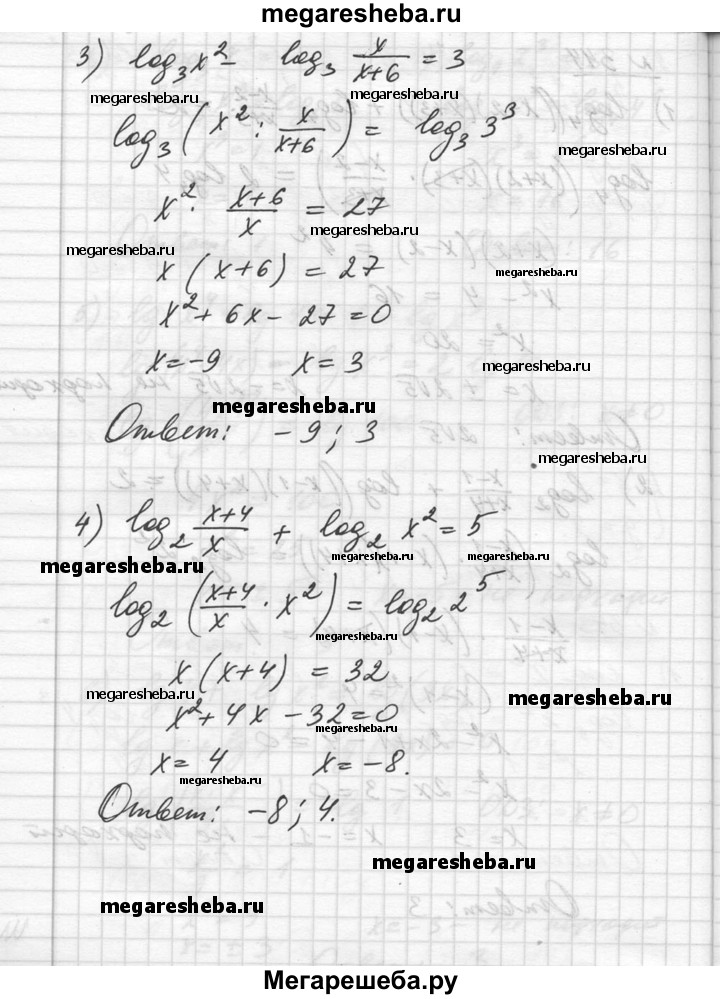 megaresheba.ru
3) log₃x² - log₃ x/(x+6) = 3
megaresheba.ru megaresheba.ru
log₃(x² : x/(x+6)) = log₃3³
megaresheba.ru megaresheba.ru
x² · (x+6)/x = 27
megaresheba.ru
megaresheba.ru
x(x+6) = 27
megaresheba.ru
x² + 6x - 27 = 0
x = -9 x = 3
megaresheba.ru
megaresheba.ru
Ответ: -9; 3
megaresheba.ru
4) log₂ (x+4)/x + log₂ x² = 5
megaresheba.ru megaresheba.ru
log₂((x+4)/x · x²) = log₂2⁵
megaresheba.ru
x(x+4) = 32
megaresheba.ru megaresheba.ru
x² + 4x - 32 = 0
megaresheba.ru
x = 4 x = -8.
megaresheba.ru
Ответ: -8; 4.
megaresheba.ru
megaresheba.ru
Мегарешеба.ру